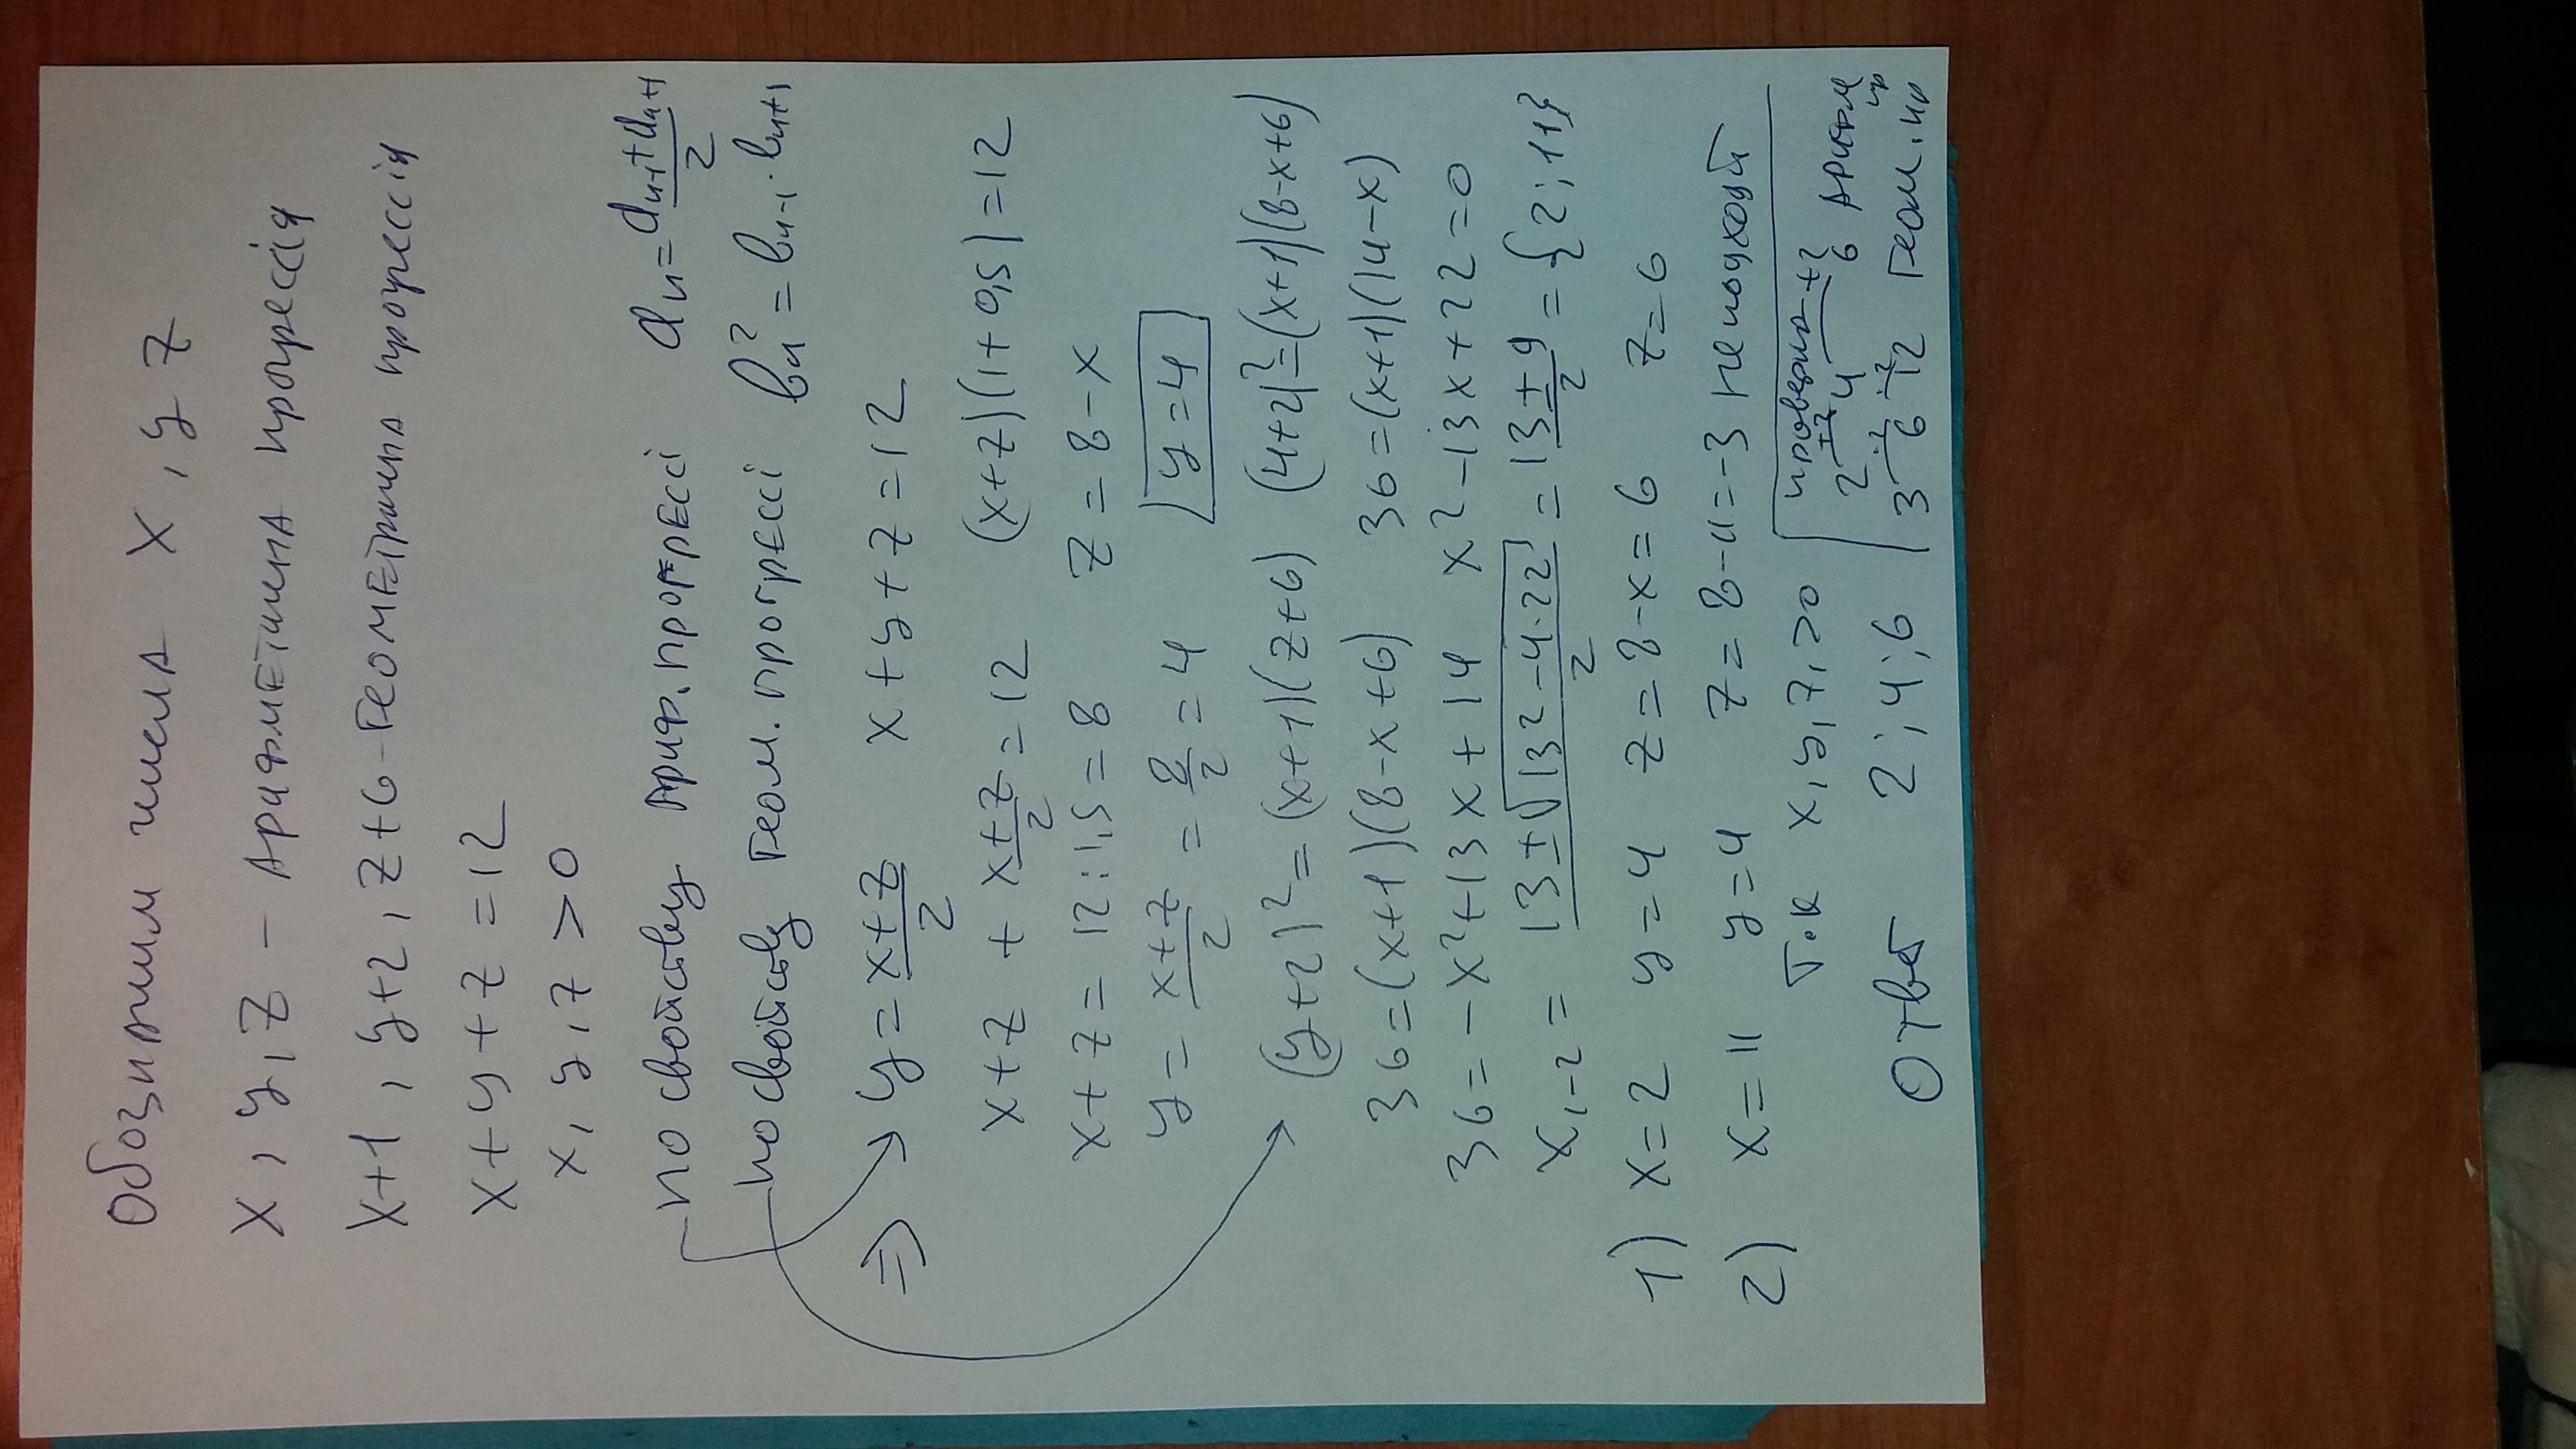 Обозначим числа x, y z
x, y, z - арифметична прогрессія
x+1, y+2, z+6 - геометрична прогрессія
x+y+z=12
x, y, z >0
по свойству ариф. прогрессі aₙ = (aₙ₋₁+aₙ₊₁)/2
по свойству геом. прогрессі bₙ² = bₙ₋₁·bₙ₊₁
=> y = (x+z)/2 x+y+z=12
x+z + (x+z)/2 = 12 (x+z)(1+0,5)=12
x+z = 12:1,5 = 8 z = 8-x
y = (x+z)/2 = 8/2 = 4 y=4
(y+2)² = (x+1)(z+6) (4+2)²=(x+1)(8-x+6)
36=(x+1)(8-x+6) 36=(x+1)(14-x)
36=-x²+13x+14 x²-13x+22=0
x₁₋₂ = (13±√(13²-4·22))/2 = (13±9)/2 = {2; 11}
1) x=2 y=4 z=8-x=6 z=6
2) x=11 y=4 z=8-11=-3 не подходит
т.к x, y, z, >0
Ответ 2; 4; 6
проверка
2 +2 4 +2 6 арифм пр
3 ·2 6 ·2 12 геом. пр